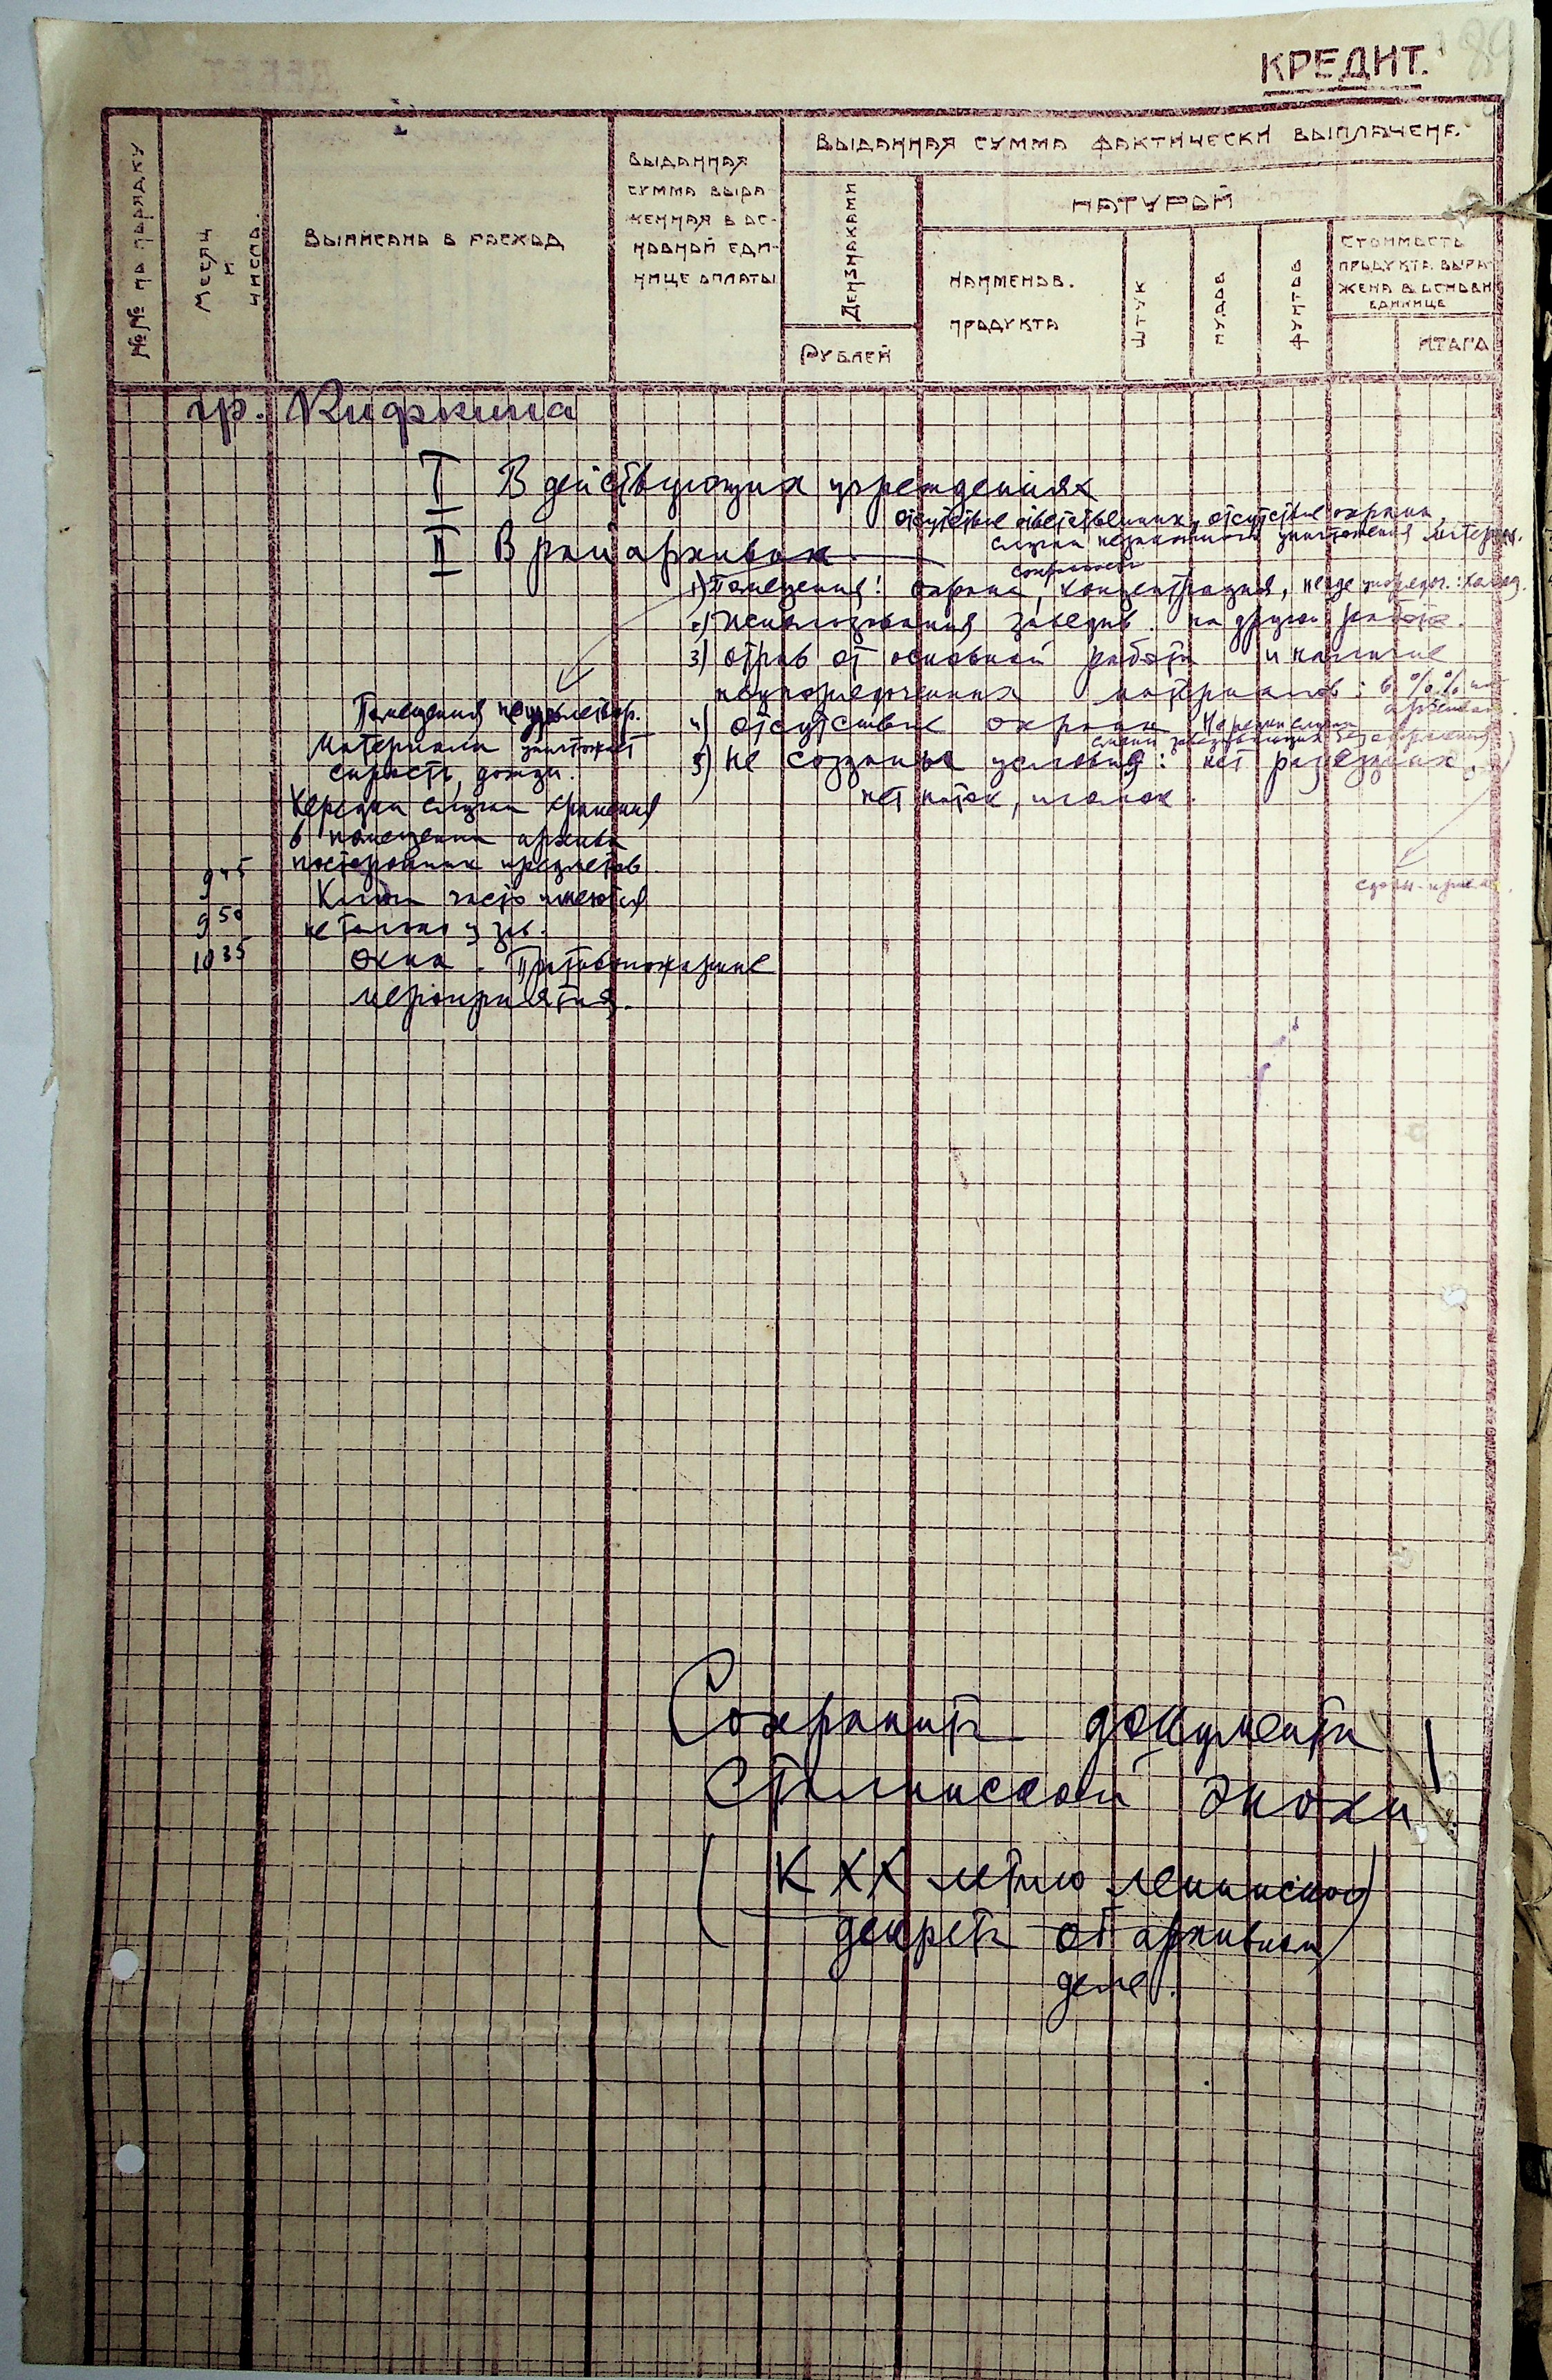 КРЕДИТ.
89
№№ по порядку
Месяц и число.
Выписано в расход
Выданная сумма выраженная в основной единице оплаты
Выданная сумма фактически выплачена
Дензнаками
Рублей
Натурой
Наименов. продукта
Штук
Пудов
Фунтов
Стоимость продукта выражена в основн единице
Итого
гр.
I В действующих учреждениях
отсутствие ответственных, отсутствие охраны,
случаи незаконного уничтожения матер.
II В райархивах
сохранность
1) Помещения: охрана, концентрация, негде
2) использования заведыв. на другой работе.
3) отрыв от основной работы и наличие
неупорядоченных материалов: в %%
4) отсутствие охраны. Нередки случаи
5) не созданы условия: нет разъездных,
нет ниток, иголок.
Помещения неудовлетвор.
Материалы уничтожает
сырость, дожди.
Нередки случаи хранения
в помещении архива
посторонних предметов
9 45
Ключи часто имеются
9 50
не только у зав.
10 35
Окна. Противопожарные
мероприятия.
Сохранить документы
Сталинской эпохи!
(К XX летию ленинского
декрета об архивном
деле.)